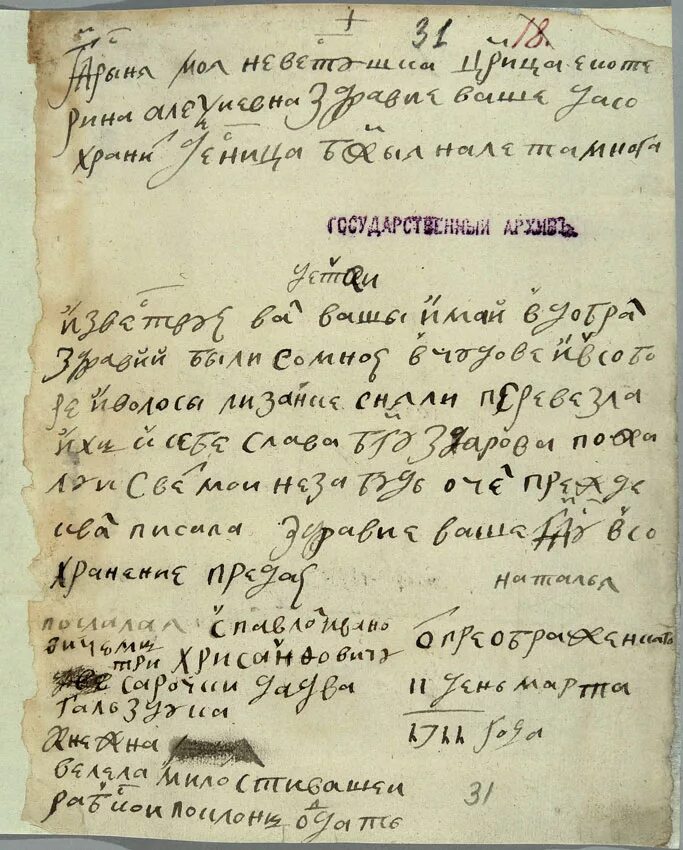 31 18.
гдрыня моя невестушка црица екоте
рина алеѯиевна здравие ваше да со
храни деница бжыя на лета многа
ГОСУДАРСТВЕННЫЙ АРХИВЪ.
детки
извествую ва вашы в добра
здравии были со мною в чудове и в собо
ре и волосы сняли перевезла
их и себе слава бгу здарови пожа
луи све мои незабудь о че прежде
к ва писала здравие ваше бгу в со
хранение предаю
наталья
послала с павло ивано
вичемъ
три хрисанфовичу
сарочки да два
галздука
княжна
велела милости вашеи
рабскои поклонъ отдать
преображенскаго
11 день марта
1711 года
31